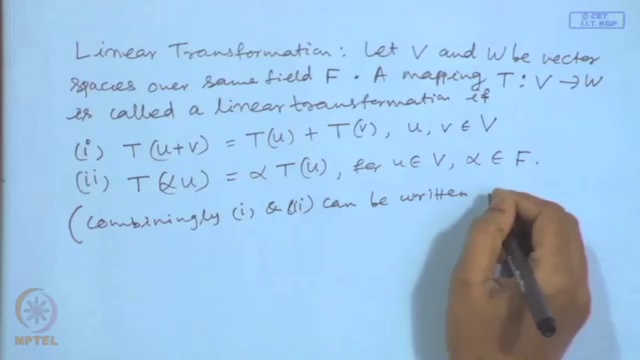 © CET
I.I.T. KGP
Linear Transformation: Let V and W be vector
spaces over same field F. A mapping T: V → W
is called a linear transformation if
(i) T(u+v) = T(u) + T(v), u, v ∈ V
(ii) T(αu) = α T(u), for u ∈ V, α ∈ F.
(Combiningly (i) & (ii) can be written
NPTEL